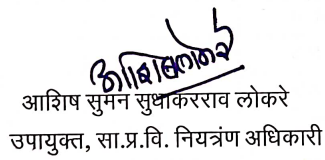 आशिष लोकरे
आशिष सुमन सुधाकरराव लोकरे
उपायुक्त, सा.प्र.वि. नियत्रंण अधिकारी